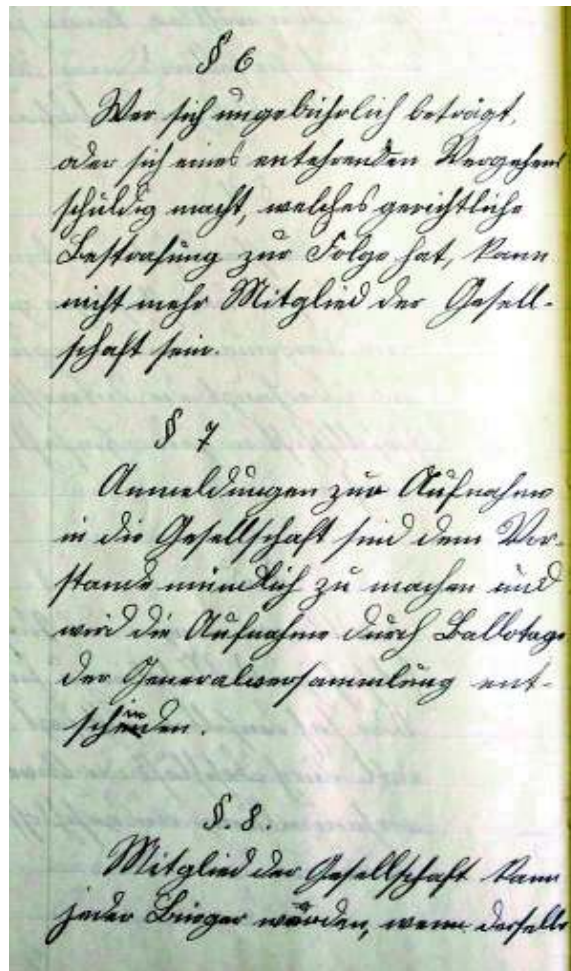 § 6
Wer sich ungebührlich beträgt,
oder sich eines entehrenden Vergehens
schuldig macht, welches gerichtliche
Bestrafung zur Folge hat, kann
nicht mehr Mitglied der Gesell-
schaft sein.
§ 7
Anmeldungen zur Aufnahme
in die Gesellschaft sind dem Vor-
stande mündlich zu machen und
wird die Aufnahme durch Ballotage
der Generalversammlung ent-
schieden.
§. 8.
Mitglied der Gesellschaft kann
jeder Bürger werden, wenn derselbe